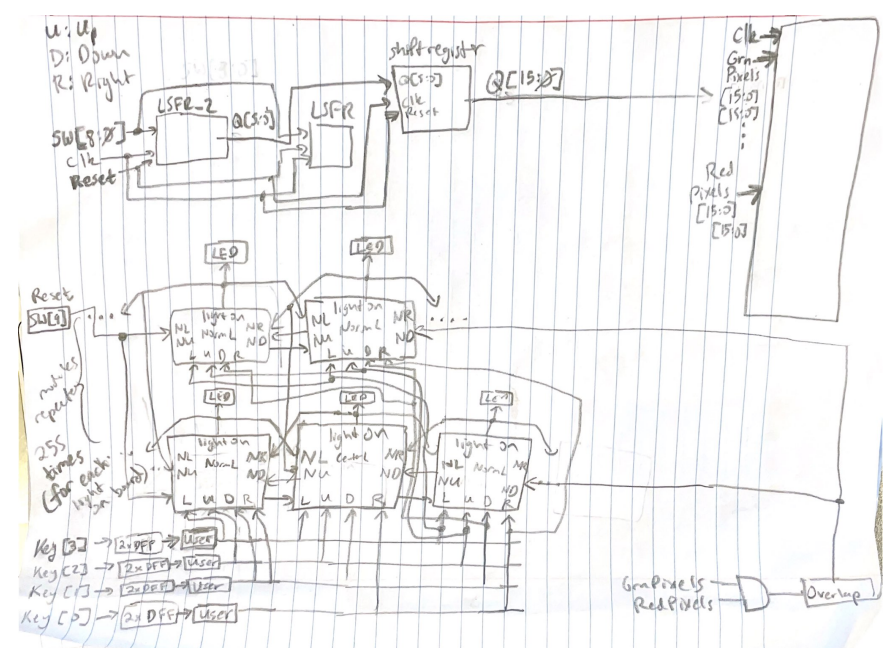 U: Up
D: Down
R: Right
LSFR_2
SW[8:0]
Clk
Reset
Q[5:0]
LSFR
shift register
Q[5:0]
Clk
Reset
Q[15:0]
Clk
Grn
Pixels
[15:0]
[15:0]
Red
Pixels
[15:0]
[15:0]
Reset
SW[9]
LED
LED
light on
NL Norm L NR
NU ND
L U D R
light on
NL Norm L NR
NU ND
L U D R
modules
repeated
255
times
(for each
light
on board)
LED
LED
Led
light on
NL Norm L NR
NU ND
L U D R
light on
NL Center L NR
NU ND
L U D R
light on
NL Norm L NR
NU ND
L U D R
Key [3] 2xDFF User
Key [2] 2xDFF User
Key [1] 2xDFF User
Key [0] 2xDFF User
GrnPixels
RedPixels
Overlap